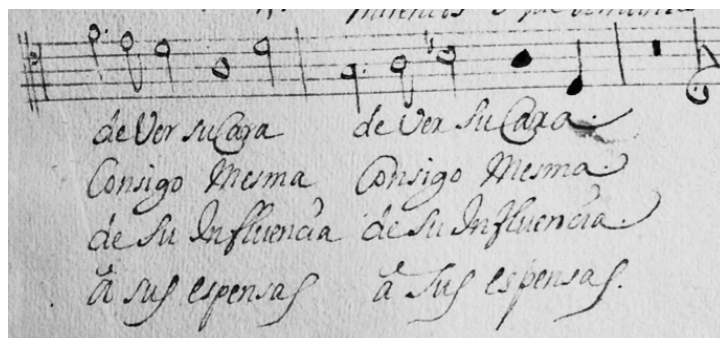 de Ver su Cara de Ver su Cara.
Consigo Mesma Consigo Mesma.
de su Influencia de su Influencia.
â sus espensas â sus espensas.